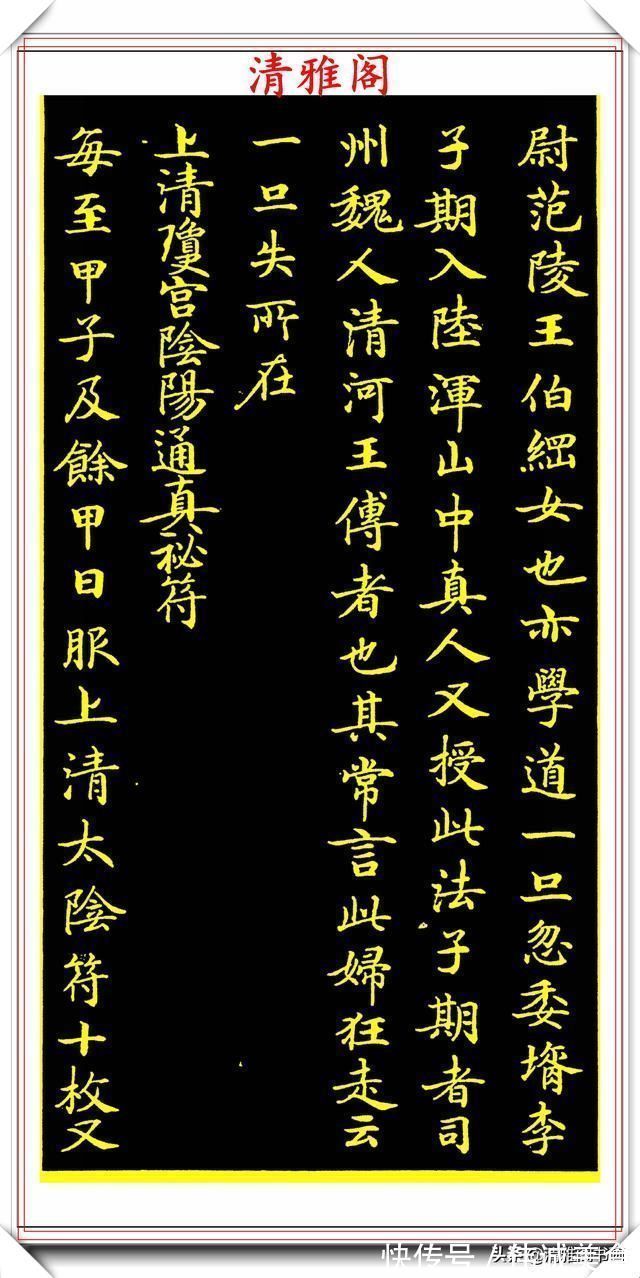 清雅阁
尉范陵王伯綱女也亦學道一旦忽委壻李
子期入陸渾山中真人又授此法子期者司
州魏人清河王傅者也其常言此婦狂走云
一旦失所在
上清瓊宫陰陽通真祕符
每至甲子及餘甲日服上清太陰符十枚又
快传号